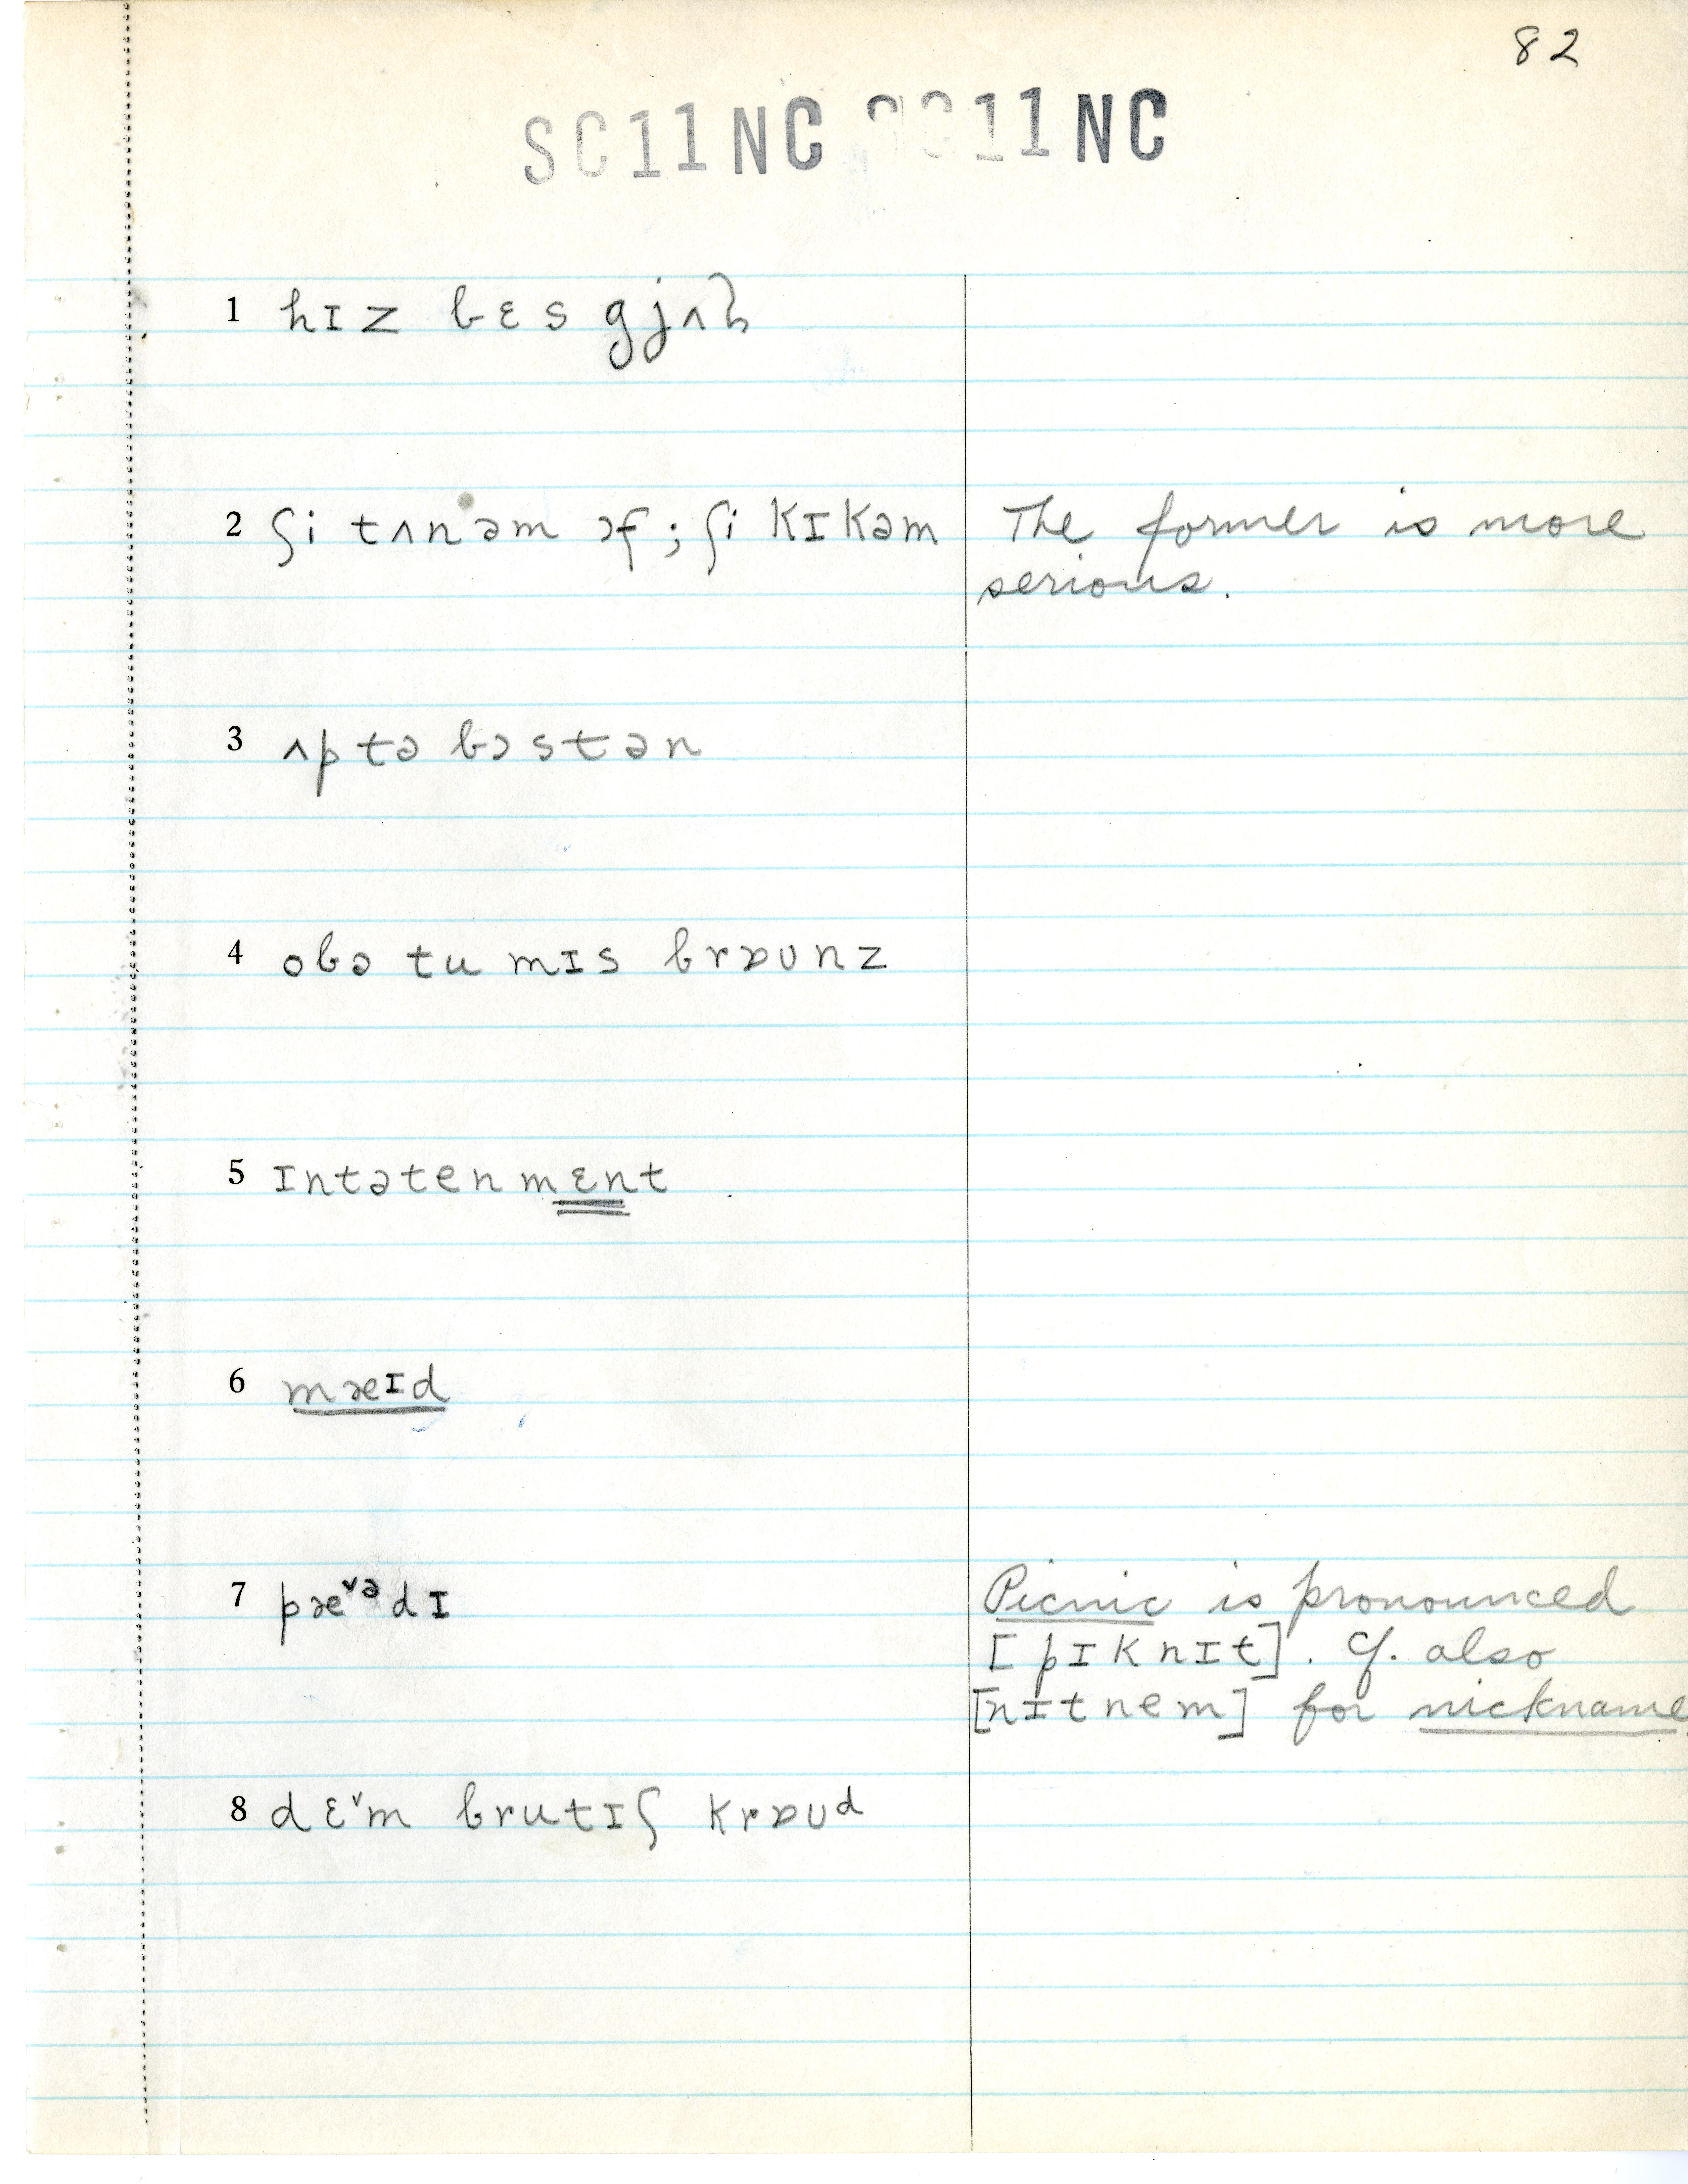 82
SC11NC SC11NC
1 hɪz bɛs gjʌl
2 ʃi tʌnəm ɔf; ʃi kɪkəm The former is more
serious.
3 ʌp tə bɔstən
4 obə tu mɪs brɒʊnz
5 ɪntətenmɛnt
6 mæɪd
7 pæ˅ᵊdɪ Picnic is pronounced
[pɪknɪt]. Cf. also
[nɪtnem] for nickname.
8 dɛ˅m brutɪʃ krɒʊd